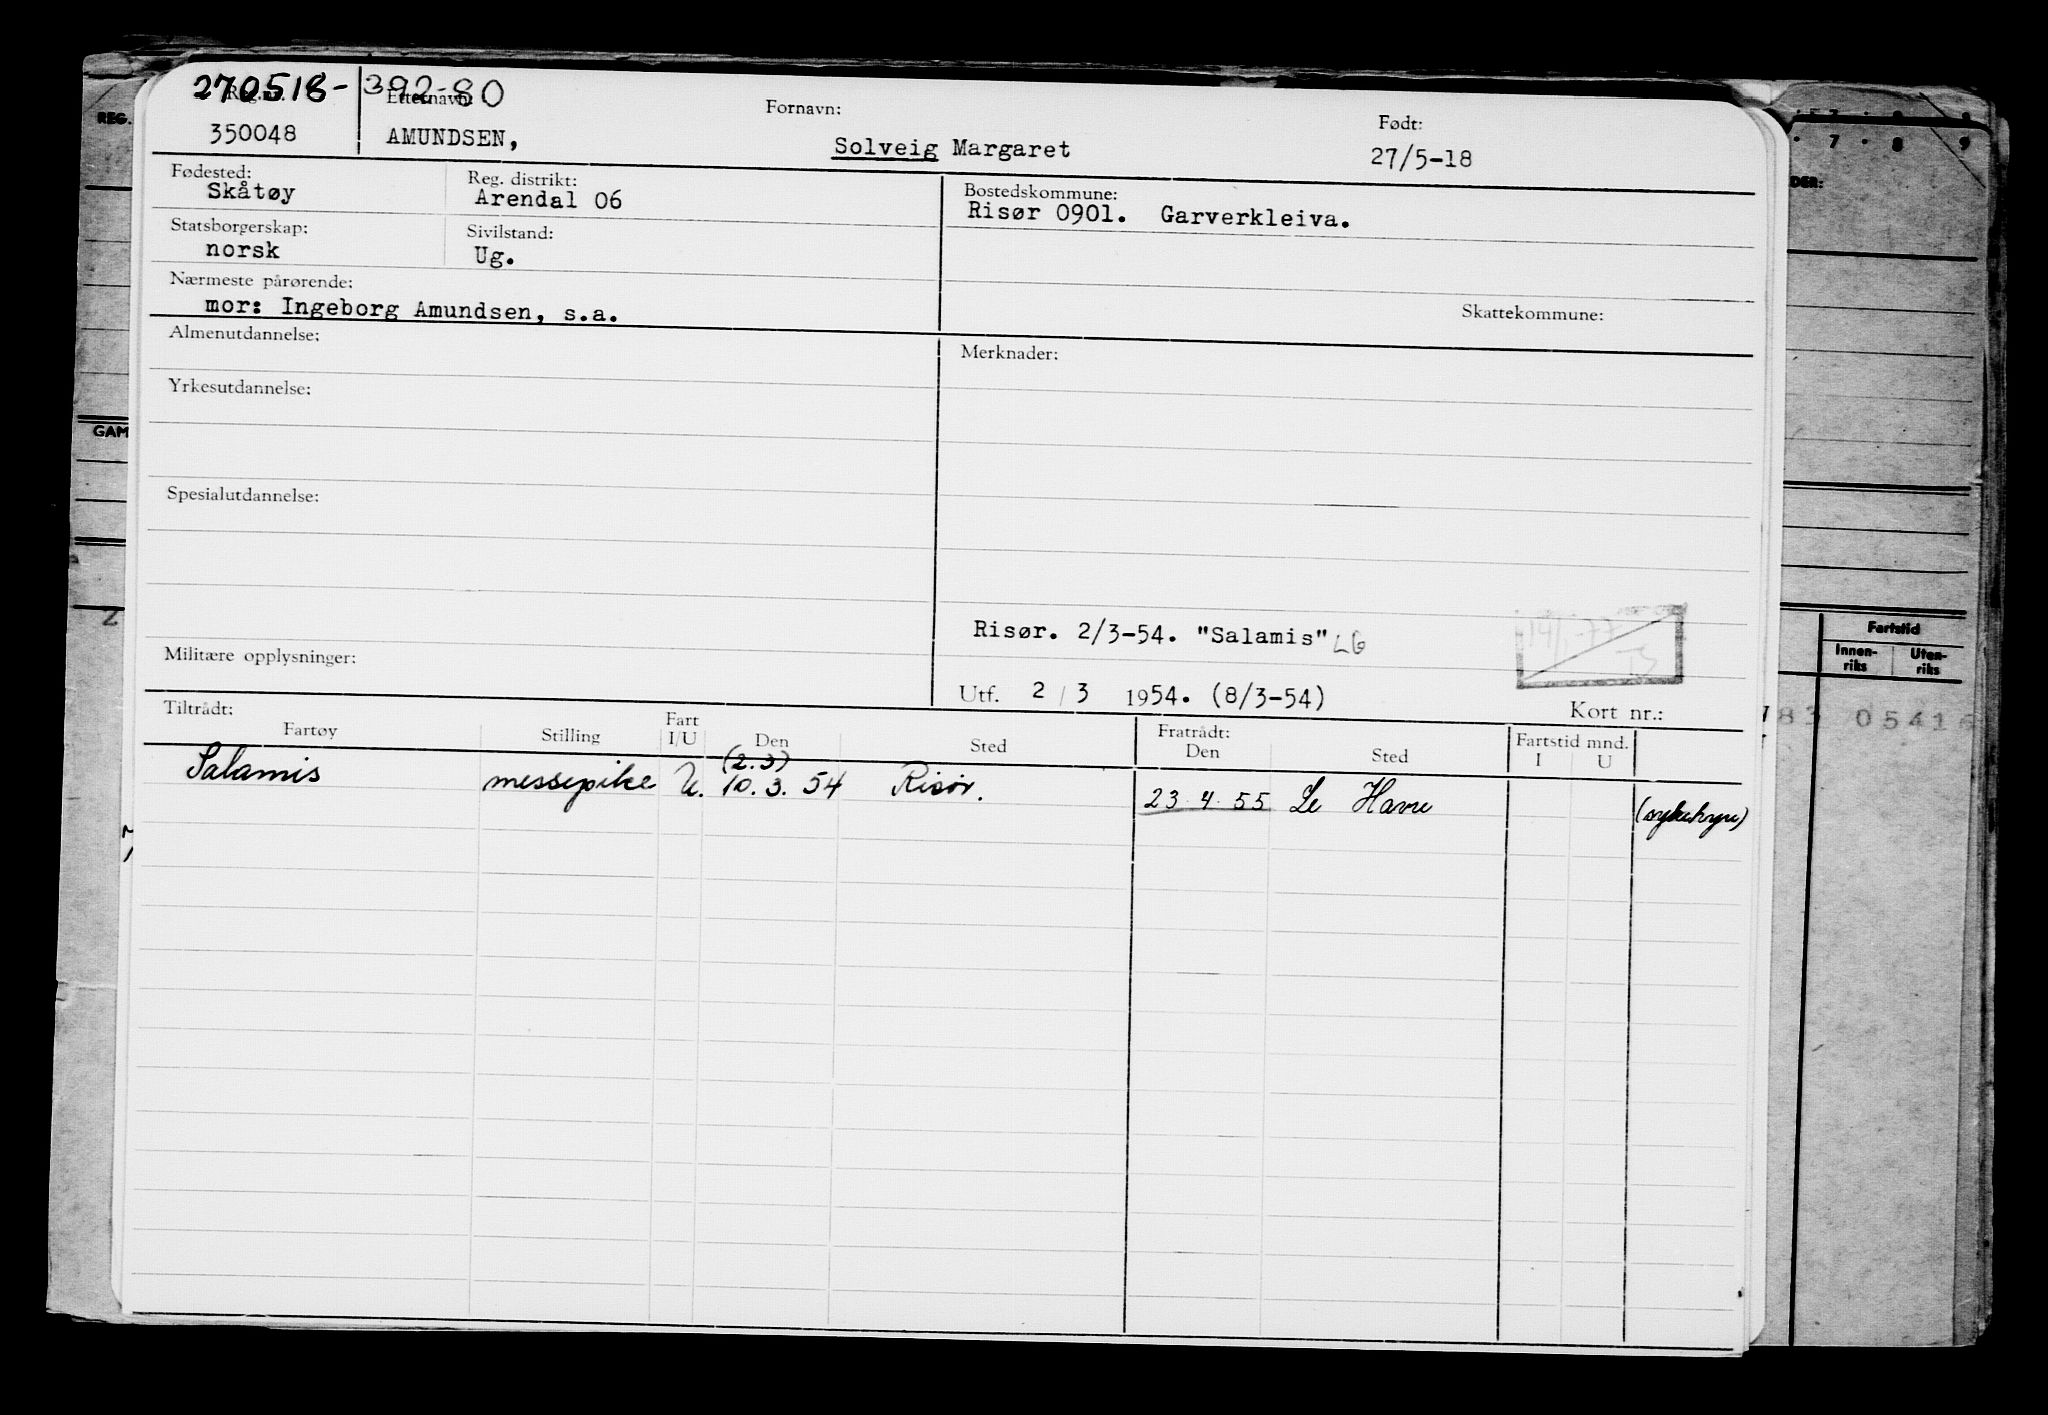 270518-392-80
Reg.nr. Etternavn: Fornavn: Født:
350048 AMUNDSEN, Solveig Margaret 27/5-18
Fødested: Reg. distrikt: Bostedskommune:
Skåtøy Arendal 06 Risør 0901. Garverkleiva.
Statsborgerskap: Sivilstand:
norsk Ug.
Nærmeste pårørende: Skattekommune:
mor: Ingeborg Amundsen, s.a.
Almenutdannelse: Merknader:
Yrkesutdannelse:
Spesialutdannelse:
Risør. 2/3-54. "Salamis" LG
Militære opplysninger:
Utf. 2 / 3 1954. (8/3-54) Kort nr.:
Tiltrådt: Fratrådt:
Fartøy Stilling Fart I/U Den Sted Den Sted Fartstid mnd. I U
(2.3)
Salamis messepike U. 10.3.54 Risør. 23.4.55 Le Havre
REG.
GAM
7 8 9
DER:
Fartstid
Innen-riks Uten-riks
83 05416